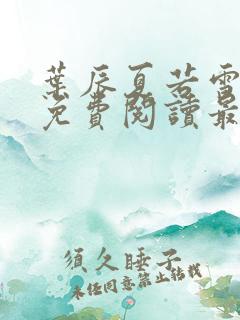 葉辰夏若雪
免費閱讀最
須久睡子
未经同意禁止转载